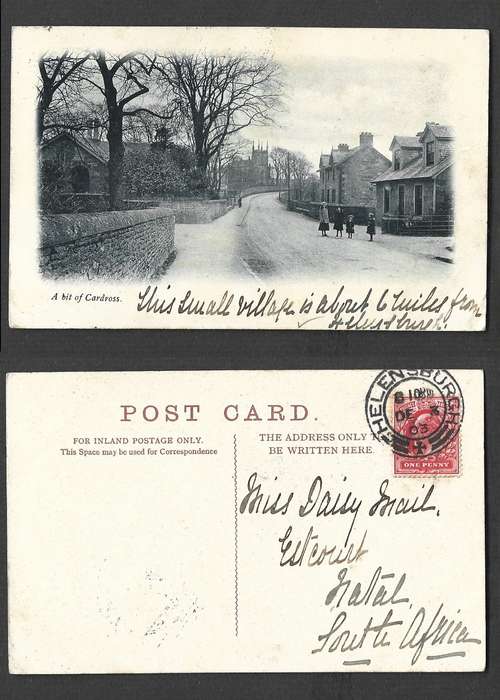 A bit of Cardross.
This small village is about 6 miles from
Helensburgh.
POST CARD.
FOR INLAND POSTAGE ONLY.
This Space may be used for Correspondence
THE ADDRESS ONLY T
BE WRITTEN HERE.
HELENSBURGH
DE 3
03
ONE PENNY
Miss Daisy Mail.
Estcourt
Natal.
South Africa